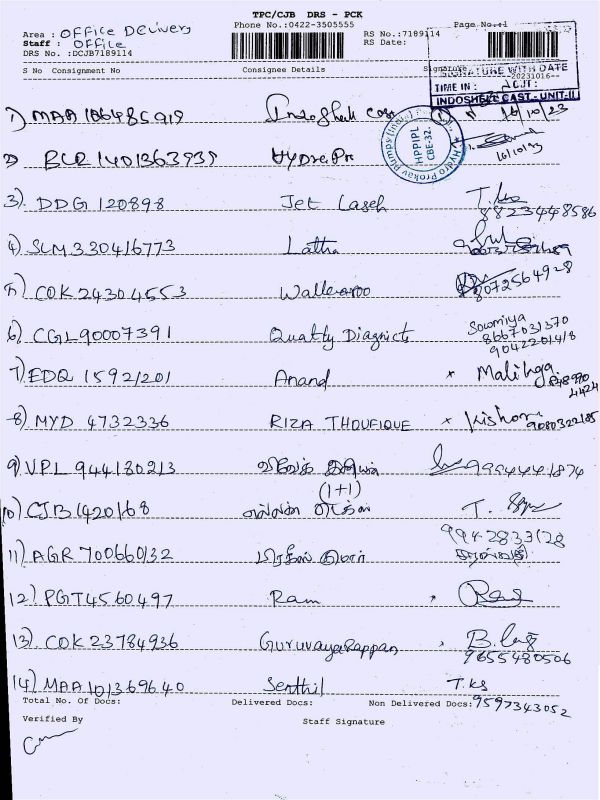 TPC/CJB DRS - PCK
Phone No.:0422-3505555 Page No.:1
Area : OFFice Delivery
Staff : OFFice
RS No.:7189114
DRS No. :DCJB7189114
RS Date:
S No Consignment No Consignee Details Signature
SIGNATURE WITH DATE
20231016
TIME IN :
INDOSHELL CAST - UNIT-II
1) MAA 186485919 Indoshell Cas 16/10/23
Hydro Prokav Pumps (India) HPPIPL CBE-32.
2) BLR 1401363939 Hydro Pr 16/10/23
3) DDG 120898 Jet Laseh T.ks
8823448586
4) SLM 330416773 Latha
5) COK 24304553 Wallearoo 8072564928
6) CGL90007391 Quality Diagnicts Sowmiya
8667031370
9042201418
7) EDQ 1592/201 Anand x Malihga
8) MYD 4732336 RIZA THOUFIQUE x Kishore
9080322185
9) VPL 944180213 9994441874
(1+1)
10) CJB 1420168 T.
9942833128
11) AGR 700660132
12) PGT4560497 Ram
13) COK 23784936 Guruvayerappan
9655480506
14) MAA 101369640 Senthil T.ks
Total No. Of Docs: Delivered Docs: Non Delivered Docs: 9597343052
Verified By Staff Signature